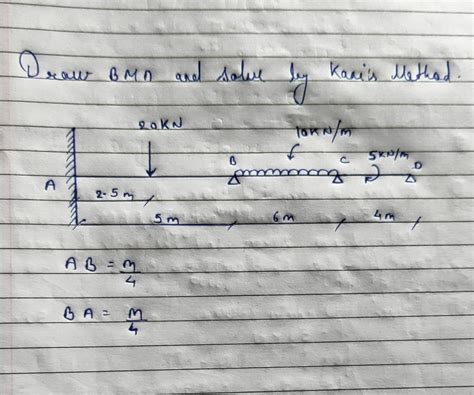 Draw BMD and solve by Kani's Method.
20KN
10KN/m
B
C
5KN/m
D
A
2.5m
5m
6m
4m
AB = m/4
BA = M/4